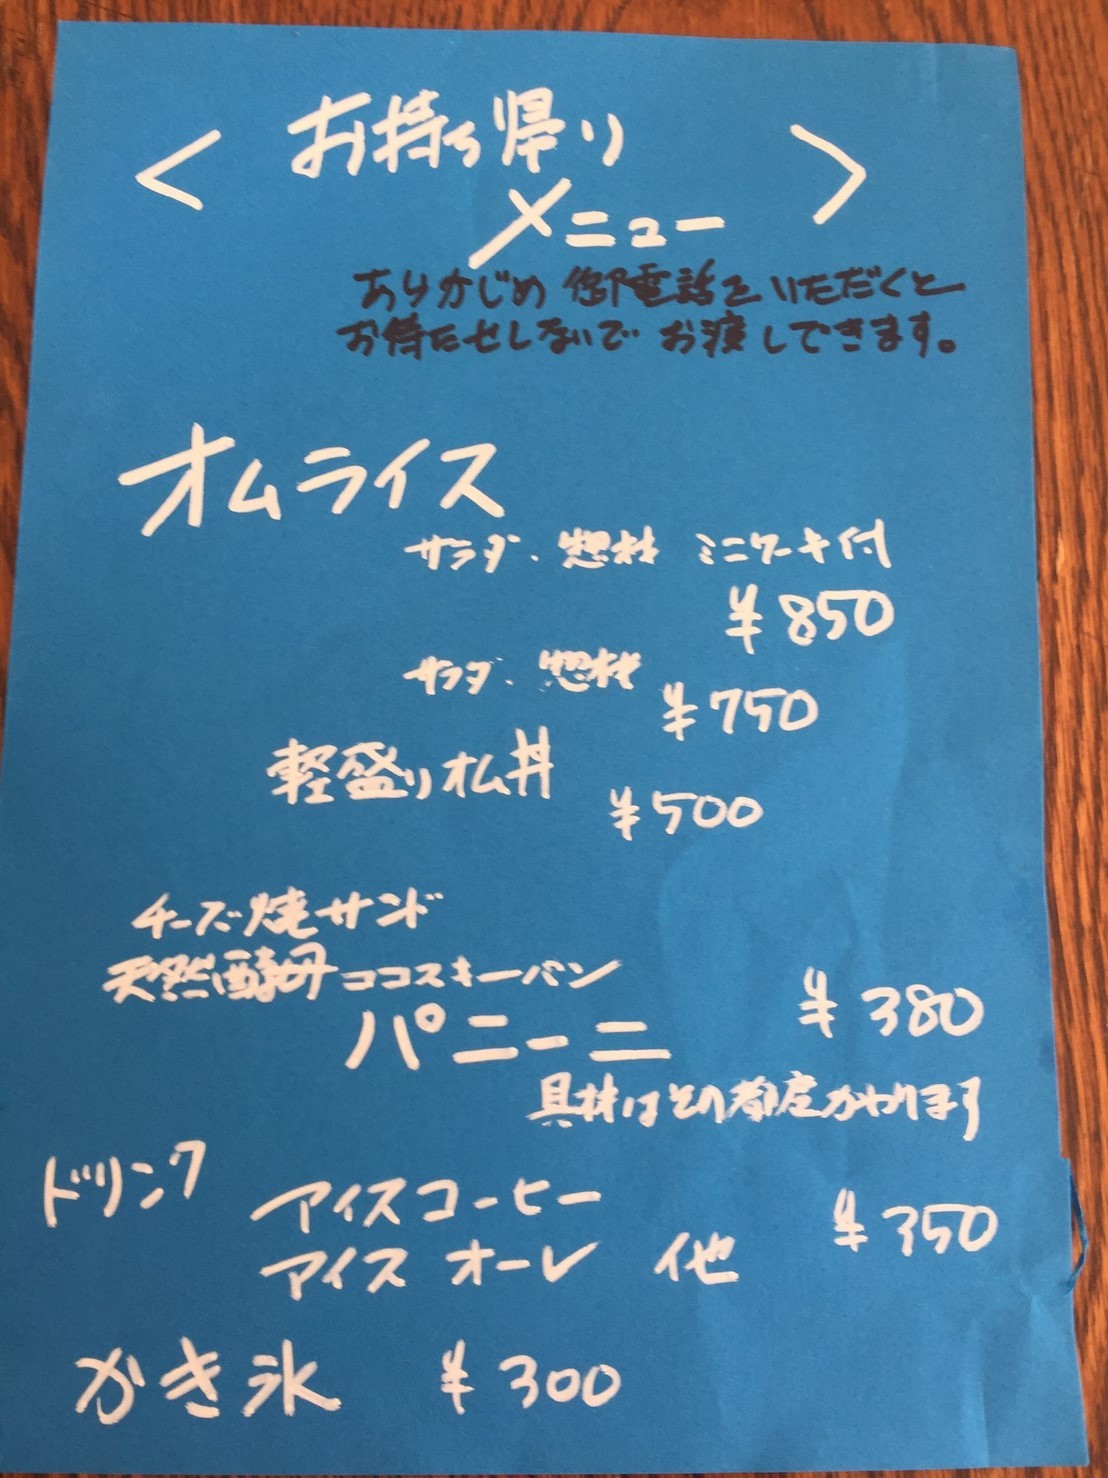 < お持ち帰り
メニュー >
あらかじめ 御電話をいただくと
お待たせしないで お渡しできます。
オムライス
サラダ・惣材 ミニケーキ付
¥850
サラダ・惣材
¥750
軽盛りオム丼
¥500
チーズ焼サンド
天然酵母ココスキーパン
パニーニ ¥380
具材はその都度かわります
ドリンク アイスコーヒー ¥350
アイス オーレ 他
かき氷 ¥300